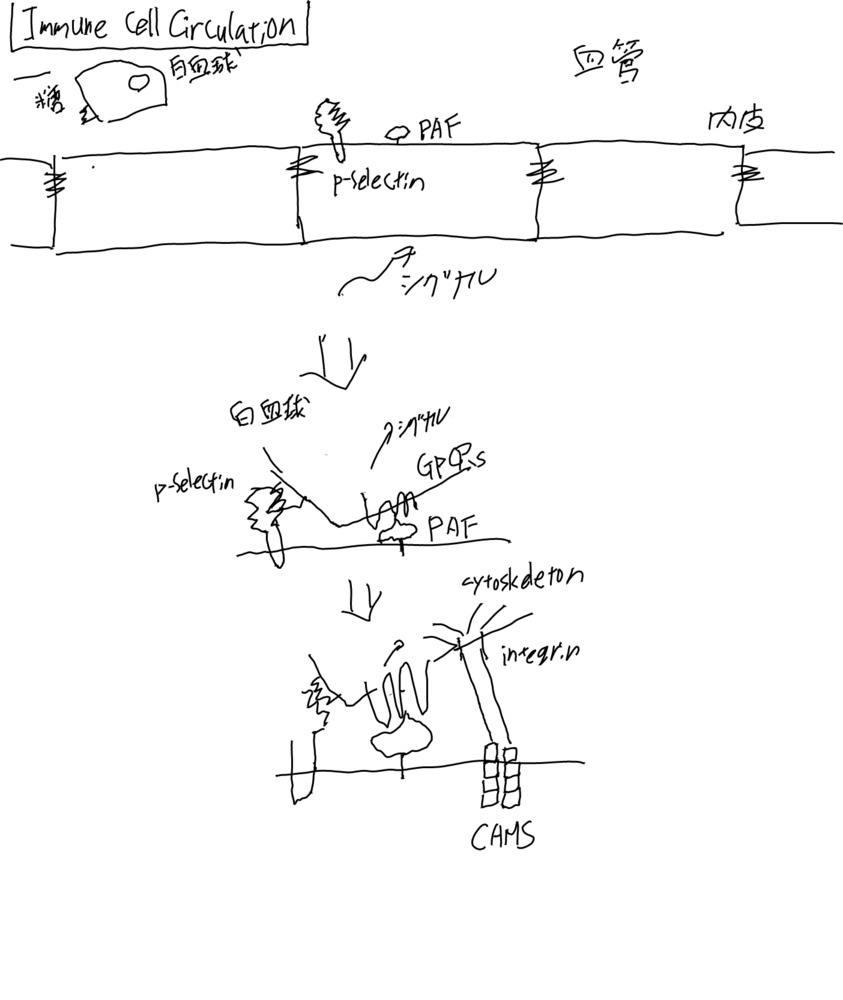 Immune Cell Circulation
白血球
血管
糖
PAF
内皮
p-selectin
シグナル
白血球
シグナル
GPCRs
p-selectin
PAF
cytoskeleton
integrin
CAMS